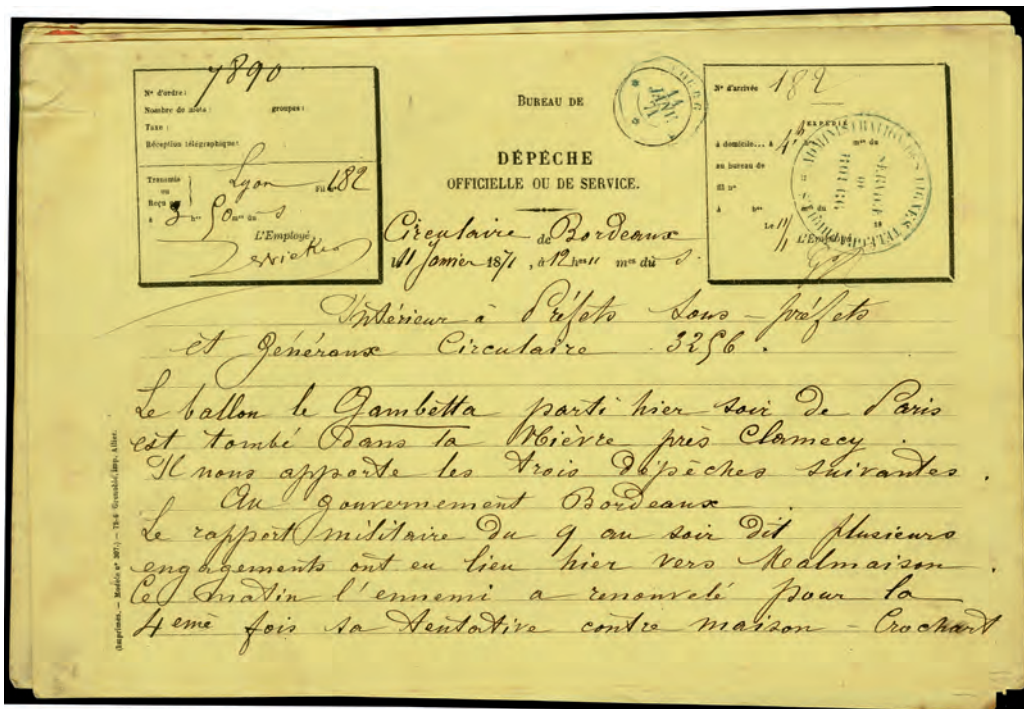 7890
N° d'ordre:
Nombre de mots: groupes:
Taxe:
Réception télégraphique:
Transmis
ou
Reçu par
Lyon Fil 182
à 3 hres 50 mes du s
L'Employé,
BUREAU DE
DÉPÊCHE
OFFICIELLE OU DE SERVICE.
Circulaire de Bordeaux
11 Janvier 1871, à 12 hres " mes du s.
11
JANV
71
N° d'arrivée 182
EXPÉDIÉ
à domicile... à 4 h mes du
au bureau de
fil n°
à hres du
Le 11/1
L'Employé
ADMINISTRATION DES LIGNES TÉLÉGRAPHIQUES
SERVICE
Intérieur à Préfets Sous-préfets
et Généraux Circulaire 3256.
Le ballon le Gambetta parti hier soir de Paris
est tombé dans la Nièvre près Clamecy.
Il nous apporte les trois dépèches suivantes.
Au gouvernement Bordeaux
Le rapport militaire du 9 au soir dit plusieurs
engagements ont eu lieu hier vers Mealmaison.
Ce matin l'ennemi a renouvelé pour la
4eme fois sa tentative contre maison-Crochart
(Imprimés. — Modèle n° 307.) — 75-6 Grenoble, imp. Allier.